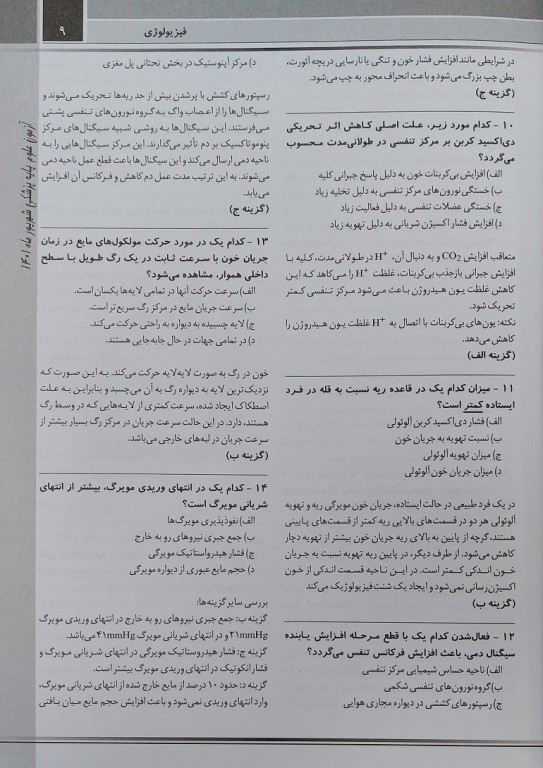 فیزیولوژی
۹
آزمون علوم پایه پزشکی شهریور ماه ۱۴۰۱
در شرایطی مانند افزایش فشار خون و تنگی یا نارسایی دریچه آئورت،
بطن چپ بزرگ می‌شود و باعث انحراف محور به چپ می‌شود.
(گزینه ج)
۱۰ - کدام مورد زیر، علت اصلی کاهش اثر تحریکی
دی‌اکسید کربن بر مرکز تنفسی در طولانی‌مدت محسوب
می‌گردد؟
الف) افزایش بی‌کربنات خون به دلیل پاسخ جبرانی کلیه
ب) خستگی نورون‌های مرکز تنفسی به دلیل تخلیه زیاد
ج) خستگی عضلات تنفسی به دلیل فعالیت زیاد
د) افزایش فشار اکسیژن شریانی به دلیل تهویه زیاد
متعاقب افزایش CO2 و به دنبال آن، H+ در طولانی‌مدت، کلیه با
افزایش جبرانی بازجذب بی‌کربنات، غلظت H+ را می‌کاهد که این
کاهش غلظت یون هیدروژن باعث می‌شود مرکز تنفسی کمتر
تحریک شود.
نکته: یون‌های بی‌کربنات با اتصال به H+ غلظت یون هیدروژن را
کاهش می‌دهد.
(گزینه الف)
۱۱ - میزان کدام یک در قاعده ریه نسبت به قله در فرد
ایستاده کمتر است؟
الف) فشار دی‌اکسید کربن آلوئولی
ب) نسبت تهویه به جریان خون
ج) میزان تهویه آلوئولی
د) میزان جریان خون آلوئولی
در یک فرد طبیعی در حالت ایستاده، جریان خون مویرگی ریه و تهویه
آلوئولی هر دو در قسمت‌های بالایی ریه کمتر از قسمت‌های پایینی
هستند، گرچه از پایین به بالای ریه جریان خون بیشتر از تهویه دچار
کاهش می‌شود. از طرف دیگر، در پایین ریه تهویه نسبت به جریان
خون اندکی کمتر است. در این ناحیه قسمت اندکی از خون
اکسیژن‌رسانی نمی‌شود و ایجاد یک شنت فیزیولوژیک می‌کند
(گزینه ب)
۱۲ - فعال‌شدن کدام یک با قطع مرحله افزایش یابنده
سیگنال دمی، باعث افزایش فرکانس تنفس می‌گردد؟
الف) ناحیه حساس شیمیایی مرکز تنفسی
ب) گروه نورون‌های تنفسی شکمی
ج) رسپتورهای کششی در دیواره مجاری هوایی
د) مرکز آپنوستیک در بخش تحتانی پل مغزی
رسپتورهای کشش با پرشدن بیش از حد ریه‌ها تحریک می‌شوند و
سیگنال‌ها را از اعصاب واگ به گروه نورون‌های تنفسی پشتی
می‌فرستند. این سیگنال‌ها به روشی شبیه سیگنال‌های مرکز
پنوموتاکسیک بر دم تأثیر می‌گذارند. این مرکز سیگنال‌هایی را به
ناحیه دمی ارسال می‌کند و این سیگنال‌ها باعث قطع عمل ناحیه دمی
می‌شوند. به این ترتیب مدت عمل دم کاهش و فرکانس آن افزایش
می‌یابد.
(گزینه ج)
۱۳ - کدام یک در مورد حرکت مولکول‌های مایع در زمان
جریان خون با سرعت ثابت در یک رگ طویل با سطح
داخلی هموار، مشاهده می‌شود؟
الف) سرعت حرکت آنها در تمامی لایه‌ها یکسان است.
ب) سرعت جریان مایع در مرکز رگ سریع‌تر است.
ج) لایه چسبیده به دیواره به راحتی حرکت می‌کند.
د) در تمامی جهات در حال جابه‌جایی هستند.
خون در رگ به صورت لایه‌لایه حرکت می‌کند. به این صورت که
نزدیک‌ترین لایه به دیواره رگ به آن می‌چسبد و بنابراین به علت
اصطکاک ایجاد شده، سرعت کمتری از لایه‌هایی که در وسط رگ
هستند، دارد. در این حالت سرعت جریان در مرکز رگ بسیار بیشتر از
سرعت جریان در لبه‌های خارجی می‌باشد.
(گزینه ب)
۱۴ - کدام یک در انتهای وریدی مویرگ، بیشتر از انتهای
شریانی مویرگ است؟
الف) نفوذپذیری مویرگ‌ها
ب) جمع جبری نیروهای رو به خارج
ج) فشار هیدرواستاتیک مویرگی
د) حجم مایع عبوری از دیواره مویرگی
بررسی سایر گزینه‌ها:
گزینه ب: جمع جبری نیروهای رو به خارج در انتهای وریدی مویرگ
۲۱mmHg و در انتهای شریانی مویرگ ۴۱mmHg می‌باشد.
گزینه ج: فشار هیدرواستاتیک مویرگی در انتهای شریانی مویرگ و
فشار انکوتیک در انتهای وریدی مویرگ بیشتر است.
گزینه د: حدود ۱۰ درصد از مایع خارج شده از انتهای شریانی مویرگ،
وارد انتهای وریدی نمی‌شود و باعث افزایش حجم مایع میان بافتی